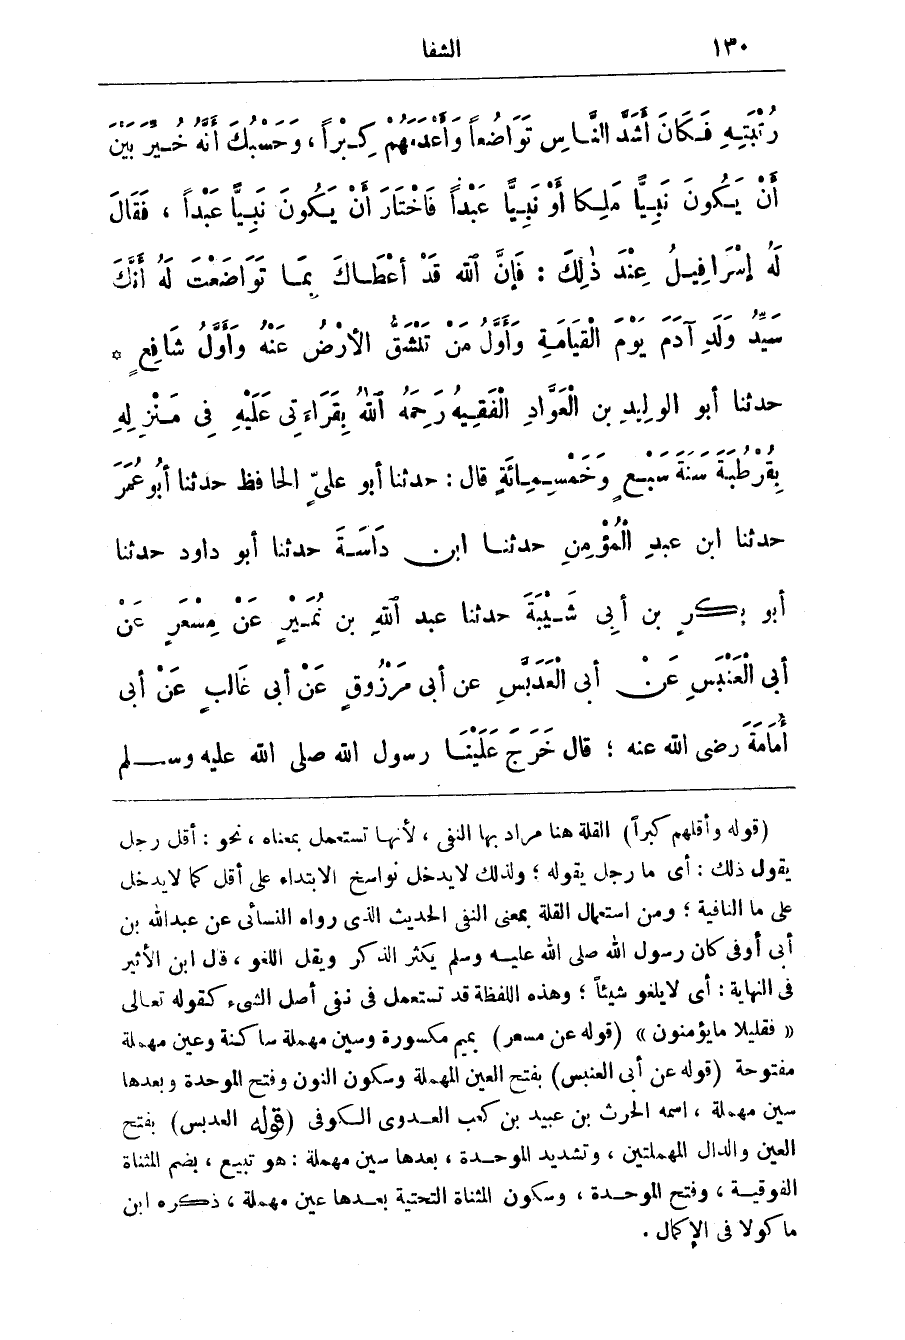 ١٣٠ الشفا
رُتْبَتِهِ فَكَانَ أَشَدَّ النَّاسِ تَوَاضُعاً وَأَعْدَمَهُمْ كِبْراً ، وَحَسْبُكَ أَنَّهُ خُيِّرَ بَيْنَ
أَنْ يَكُونَ نَبِيًّا مَلِكا أَوْ نَبِيًّا عَبْداً فَاخْتَارَ أَنْ يَكُونَ نَبِيًّا عَبْداً ، فَقَالَ
لَهُ إسْرَافِيلُ عِنْدَ ذٰلِكَ : فَإنَّ ٱلله قَدْ أَعْطَاكَ بِمَا تَوَاضَعْتَ لَهُ أَنَّكَ
سَيِّدُ وَلَدِ آدَمَ يَوْمَ الْقِيَامَةِ وَأَوَّلُ مَنْ تَنْشَقُّ الأرْضُ عَنْهُ وَأَوَّلُ شَافِعٍ *
حدثنا أبو الوليد بن الْعَوَّادِ الْفَقِيهُ رَحِمَهُ ٱللهُ بِقَرَاءَتِى عَلَيْهِ فِى مَنْزِلِهِ
بِقُرْطُبَةَ سَنَةَ سَبْعٍ وَخَمْسِمِائَةٍ قال : حدثنا أبو علىٍّ الحافظ حدثنا أبُو عُمَرَ
حدثنا ابن عبدِ الْمُؤْمِنِ حدثنا ابن دَاسَةَ حدثنا أبو داود حدثنا
أبو بكرِ بن أَبِى شَيْبَةَ حدثنا عبد ٱللهِ بن نُمَيْرٍ عَنْ مِسْعَرٍ عَنْ
أبِى الْعَنْبَسِ عَنْ أبى الْعَدَبَّسِ عن أبى مَرْزُوقٍ عَنْ أبى غَالبٍ عَنْ أبى
أُمَامَةَ رضى الله عنه ؛ قال خَرَجَ عَلَيْنَا رسول الله صلى الله عليه وسلم
(قوله وأقلهم كبراً) القلة هنا مراد بها النفى ، لأنها تستعمل بمعناه ، نحو : أقل رجل
يقول ذلك : أى ما رجل يقوله ؛ ولذلك لايدخل نواسخ الابتداء على أقل كما لايدخل
على ما النافية ؛ ومن استعمال القلة بمعنى النفى الحديث الذى رواه النسائى عن عبدالله بن
أبى أوفى كان رسول الله صلى الله عليه وسلم يكثر الذكر ويقل اللغو ، قال ابن الأثير
فى النهاية : أى لايلغو شيئاً ؛ وهذه اللفظة قد تستعمل فى نفى أصل الشىء كقوله تعالى
« فقليلا مايؤمنون » (قوله عن مسعر) بميم مكسورة وسين مهملة ساكنة وعين مهملة
مفتوحة (قوله عن أبى العنبس) بفتح العين المهملة وسكون النون وفتح الموحدة وبعدها
سين مهملة ، اسمه الحرث بن عبيد بن كعب العدوى الكوفى (قوله العدبس) بفتح
العين والدال المهملتين ، وتشديد الموحدة ، بعدها سين مهملة : هو تبيع ، بضم المثناة
الفوقية ، وفتح الموحدة ، وسكون المثناة التحتية بعدها عين مهملة ، ذكره ابن
ماكولا فى الإكمال .